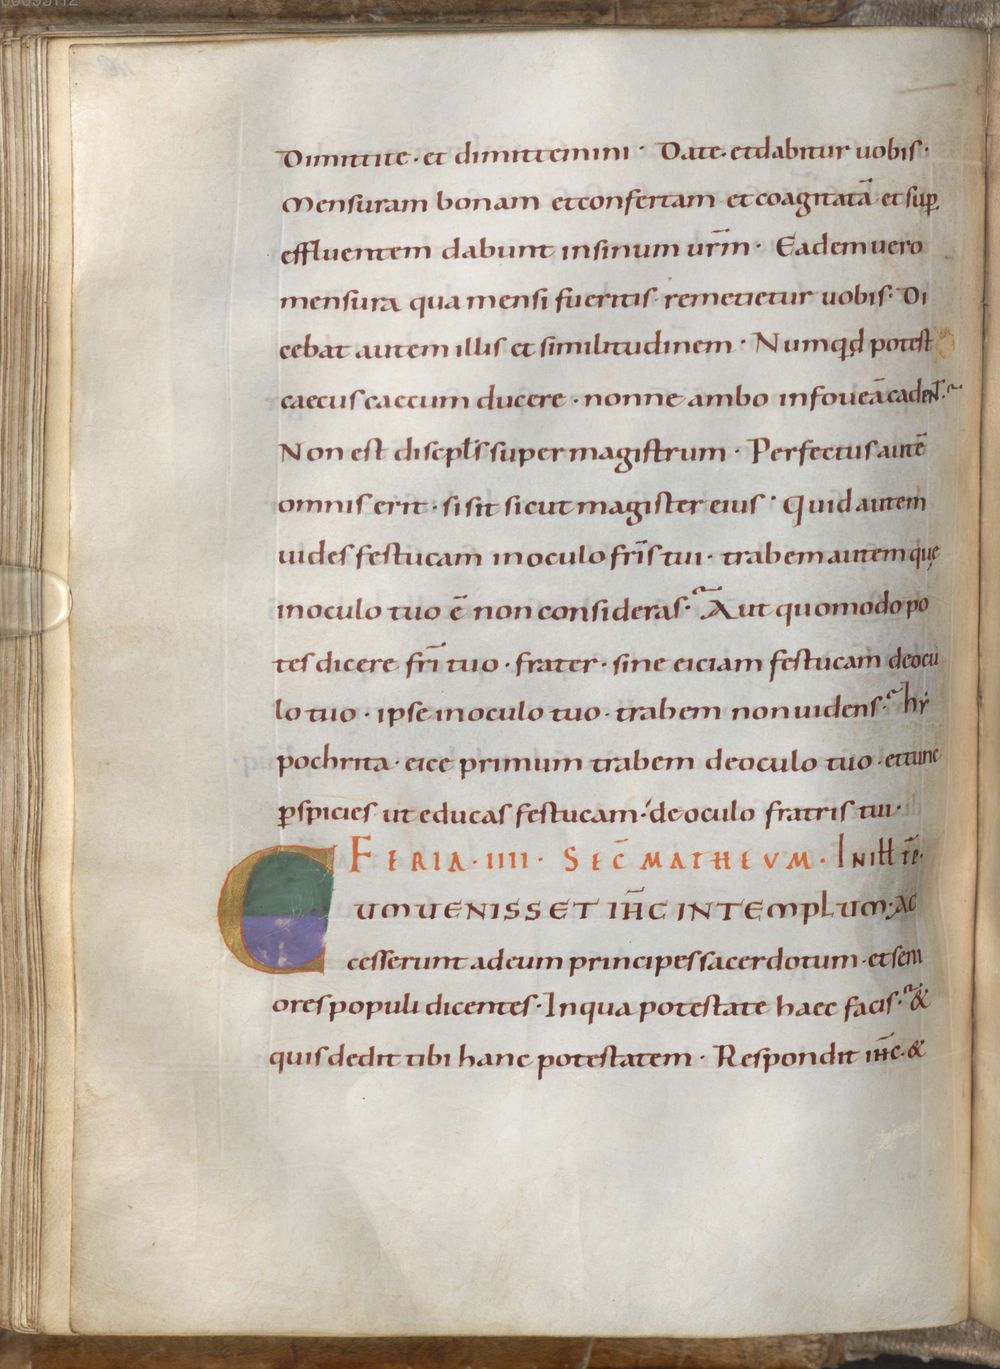 Dimittite · et dimittemini · Date · et dabitur uobis ·
Mensuram bonam et confertam et coagitatā et suꝑ
effluentem dabunt insinum ur̄m · Eadem uero
mensura qua mensi fueritis · remetietur uobis · Di
cebat autem illis et similitudinem · Numqd potest
caecus caecum ducere · nonne ambo in foueā cadent ·
Non est discpl̄s super magistrum · Perfectus autē
omnis erit · si sit sicut magister eius · Quid autem
uides festucam in oculo fr̄is tui · trabem autem quę
in oculo tuo ē non consideras · Aut quomodo po
tes dicere fr̄i tuo · frater · sine eiciam festucam de ocu
lo tuo · ipse in oculo tuo · trabem non uidens · hẏ
pochrita · eice primum trabem de oculo tuo · et tunc
ꝑspicies ut educas festucam · de oculo fratris tui ·
FERIA · IIII · SEC̄ MATHEVM · In ill t̄e ·
CUM UENISSET IH̄C IN TEMPLUM · AC
cesserunt ad eum principes sacerdotum · et seni
ores populi dicentes · In qua potestate haec facis · &
quis dedit tibi hanc potestatem · Respondit ih̄c · &